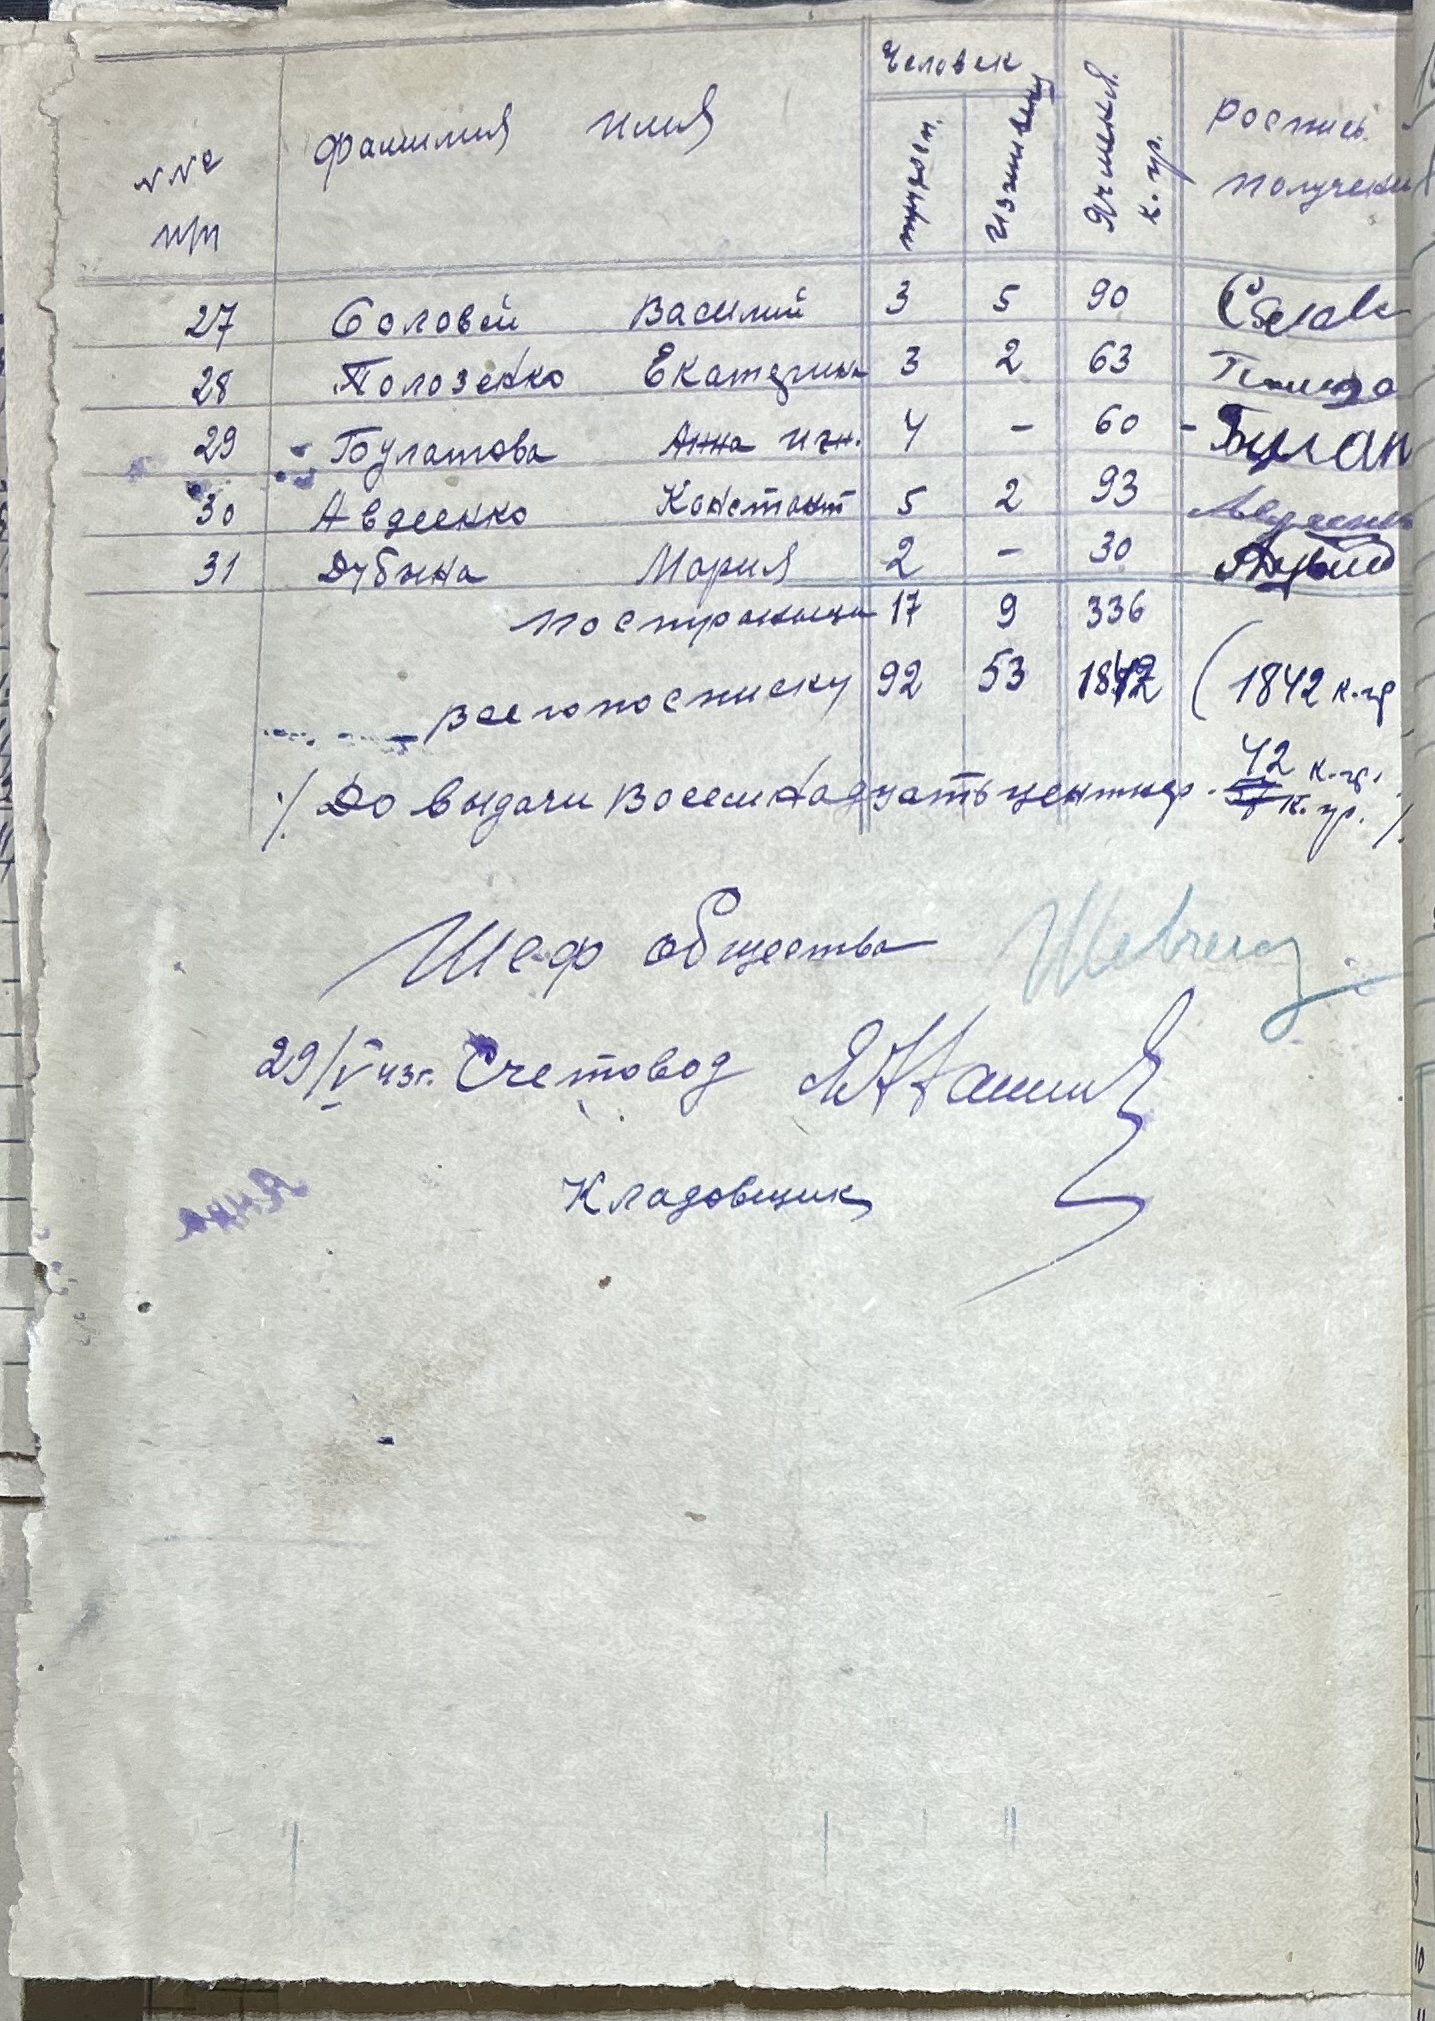 №№ п/п Фамилия Имя Человек трудосп. Иждивенц Ячменя к.гр. Роспись получении
27 Соловей Василий 3 5 90
28 Полозенко Екатерина 3 2 63
29 Булатова Анна Игн. 4 – 60 - Булан
30 Авдеенко Констант 5 2 93
31 Дубина Мария 2 – 30
по странице 17 9 336
всего по списку 92 53 1842 (1842 к.гр
/ До выдачи Восемнадцать центнер. 42 к.гр.
к.гр. /
Шеф общества Шевченко
29/V 43г. Счетовод
Кладовщик